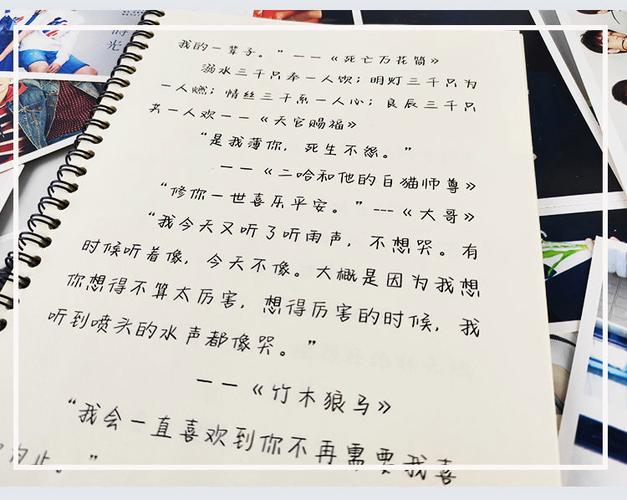 时光
我的一辈子。”——《死亡万花筒》
溺水三千只奉一人饮；明灯三千只为
一人燃；情丝三千系一人心；良辰三千只
共一人欢——《天官赐福》
“是我薄你，死生不怨。”
——《二哈和他的白猫师尊》
“修你一世喜乐平安。”---《大哥》
“我今天又听了听雨声，不想哭。有
时候听着像，今天不像。大概是因为我想
你想得不算太厉害，想得厉害的时候，我
听到喷头的水声都像哭。”
——《竹木狼马》
“我会一直喜欢到你不再需要我喜
为止。”